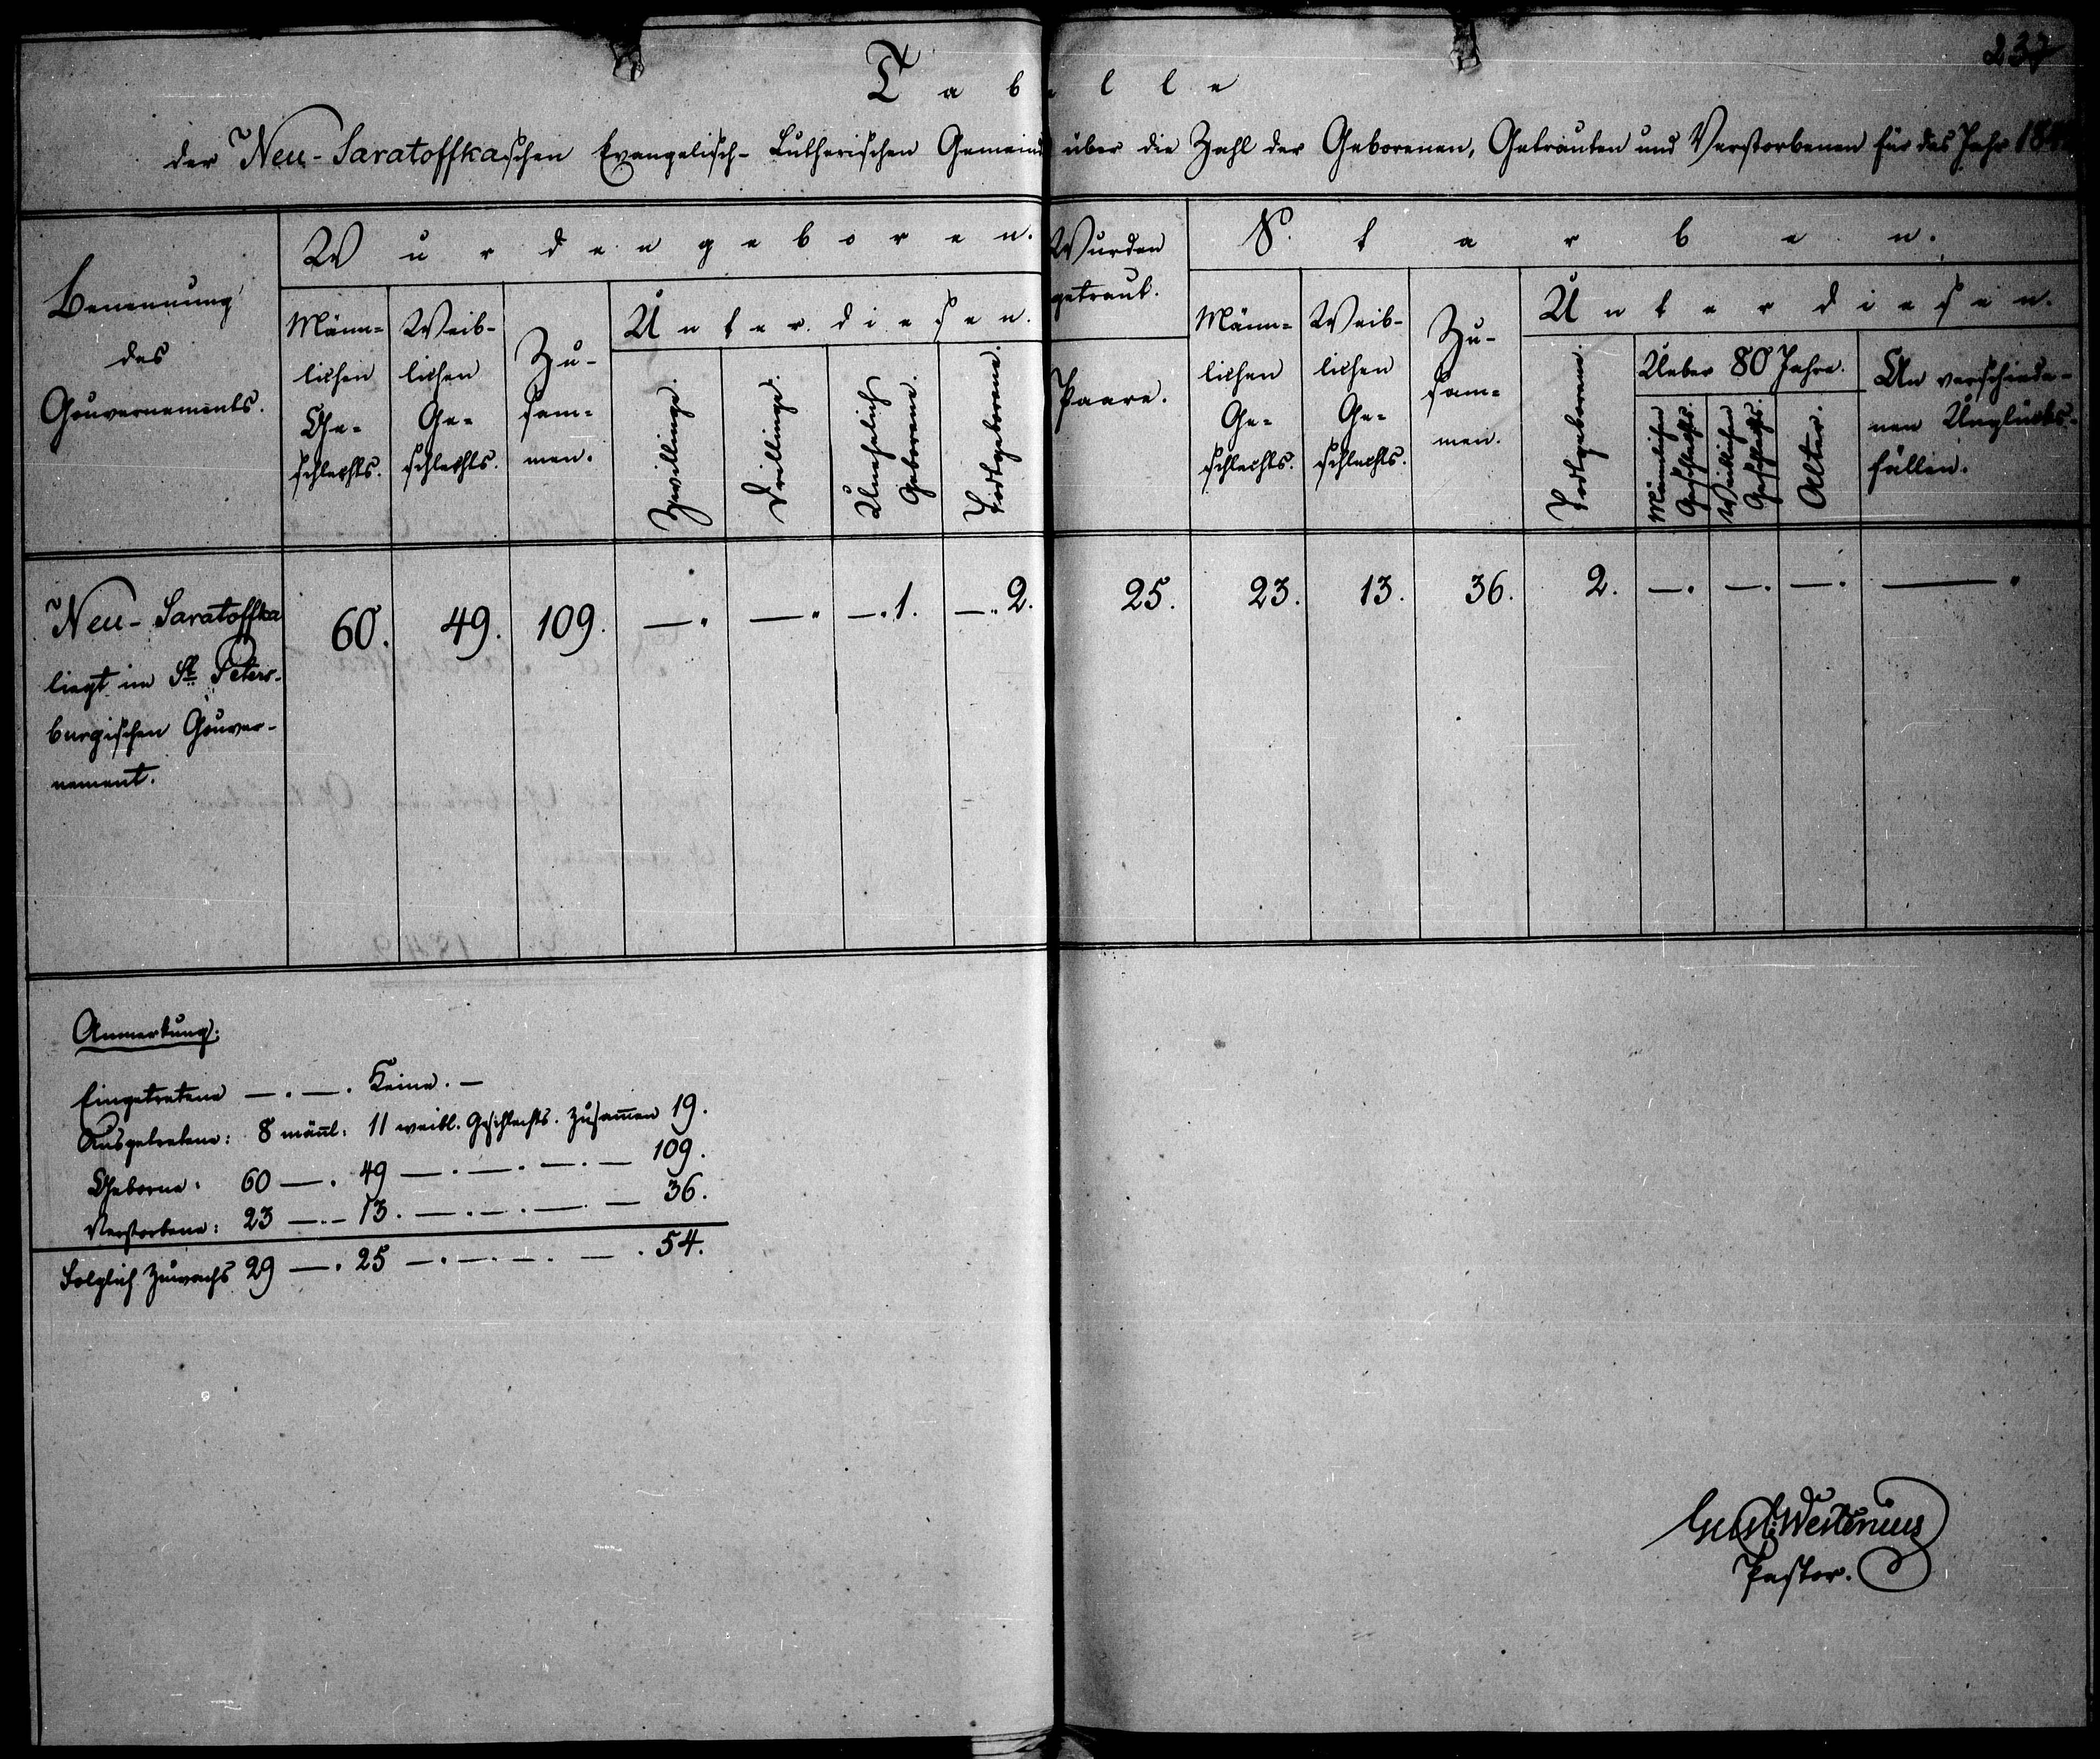 237
Tabelle
der Neu-Saratoffkaschen Evangelisch-Lutherischen Gemeinde über die Zahl der Geborenen, Getrauten und Verstorbenen für das Jahr
Benennung
des
Gouvernements.
Wurden geboren.
Männ-
lichen
Ge-
schlechts.
Weib-
lichen
Ge-
schlechts.
Zu-
sam-
men.
Unter diesen.
Zwillinge.
Drillinge.
Unehelich
Geborene.
Todtgeborene.
Wurden
getraut.
Paare.
Starben.
Männ-
lichen
Ge-
schlechts.
Weib-
lichen
Ge-
schlechts.
Zu-
sam-
men.
Unter diesen.
Todtgeborene.
Ueber 80 Jahre.
Männlichen
Geschlechts.
Weiblichen
Geschlechts.
Alter.
An verschiede-
nen Unglücks-
fällen.
Neu-Saratoffka
liegt im St Peters-
burgischen Gouver-
nement.
60. 49. 109. —. —. —.1. —.2. 25. 23. 13. 36. 2. —. —. —. —.
Anmerkung:
Eingetretene —.—. Keine. —
Ausgetretene: 8 männl: 11 weibl. Geschlechts. Zusammen 19.
Geborne: 60 —. 49 —.—.—.— 109.
Verstorbene: 23 —.— 13. —.—.—.— 36.
Folglich Zuwachs 29 —. 25 —.—.—. —. 54.
Pastor.